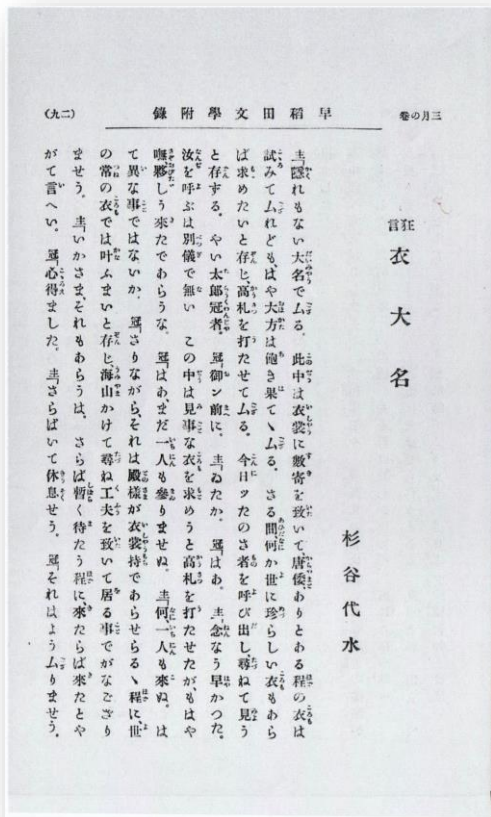 三月の巻
早稲田文學附錄
(二九)
狂言 衣大名
杉谷代水
主「隱れもない大名でムる。此中は衣裳に數寄を致いて唐倭ありとある程の衣は
試みてムれども、はや大方は飽き果てゝムる。さる間、何か世に珍らしい衣もあら
ば求めたいと存じ、高札を打たせてムる。今日ッたのさ者を呼び出し、尋ねて見う
と存する。やい太郎冠者。冠「御ン前に。主「ゐたか。冠「はあ。主「念なう早かつた。
汝を呼ぶは別儀で無い この中は見事な衣を求めうと高札を打たせたが、もはや
嘸夥しう來たであらうな。冠「はあ、まだ一人も參りませぬ。主「何一人も來ぬ。は
て異な事ではないか。冠「さりながら、それは殿樣が衣裳持であらせらるゝ程に、世
の常の衣では叶ふまいと存じ、海山かけて尋ね工夫を致いて居る事でがなござり
ませう。主「いかさま、それもあらうは、さらば暫く待たう程に、來たらば來たとや
がて言へい。冠「心得ました。主「さらばいて休息せう。冠「それはようムりませう。